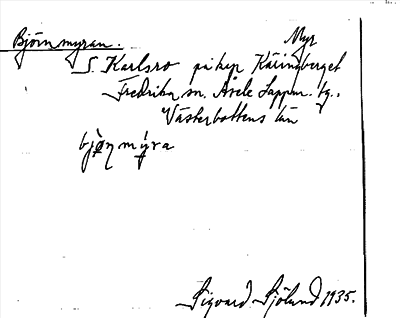 Björnmyran. Myr
S. Karlsro på kyr Käringberget
Fredrika sn. Åsele Lappm. tg.,
Västerbottens län
Sigvard Sjölund 1935.